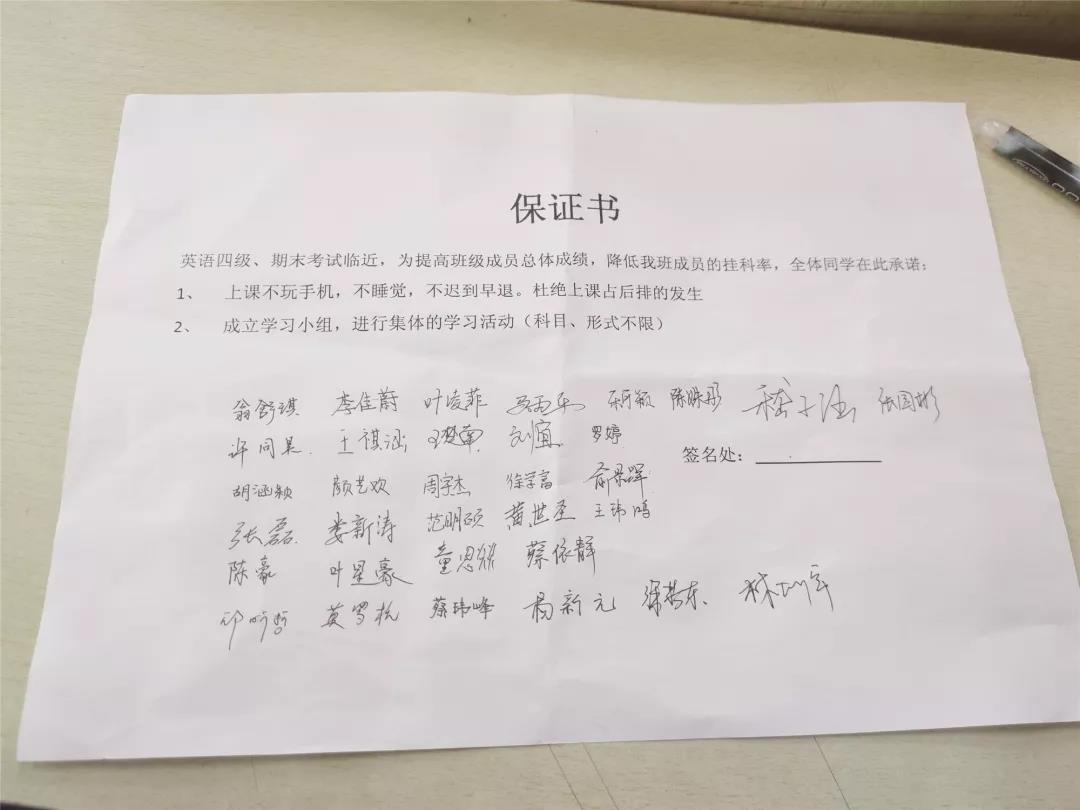 保证书
英语四级、期末考试临近，为提高班级成员总体成绩，降低我班成员的挂科率，全体同学在此承诺：
1、 上课不玩手机，不睡觉，不迟到早退。杜绝上课占后排的发生
2、 成立学习小组，进行集体的学习活动（科目、形式不限）
翁舒琪 李佳蔚 叶凌菲 柯颖 陈姝彤 张国彬
许同昊 王祺涵 刘宜 罗婷
签名处：
胡涵颖 颜艺欢 周宇杰 徐学富 俞景晖
张磊 娄新涛 范明硕 黄世圣 王玮鸣
陈豪 叶星豪 童思 蔡依静
邱昕哲 莫罗松 蔡玮峰 杨新元